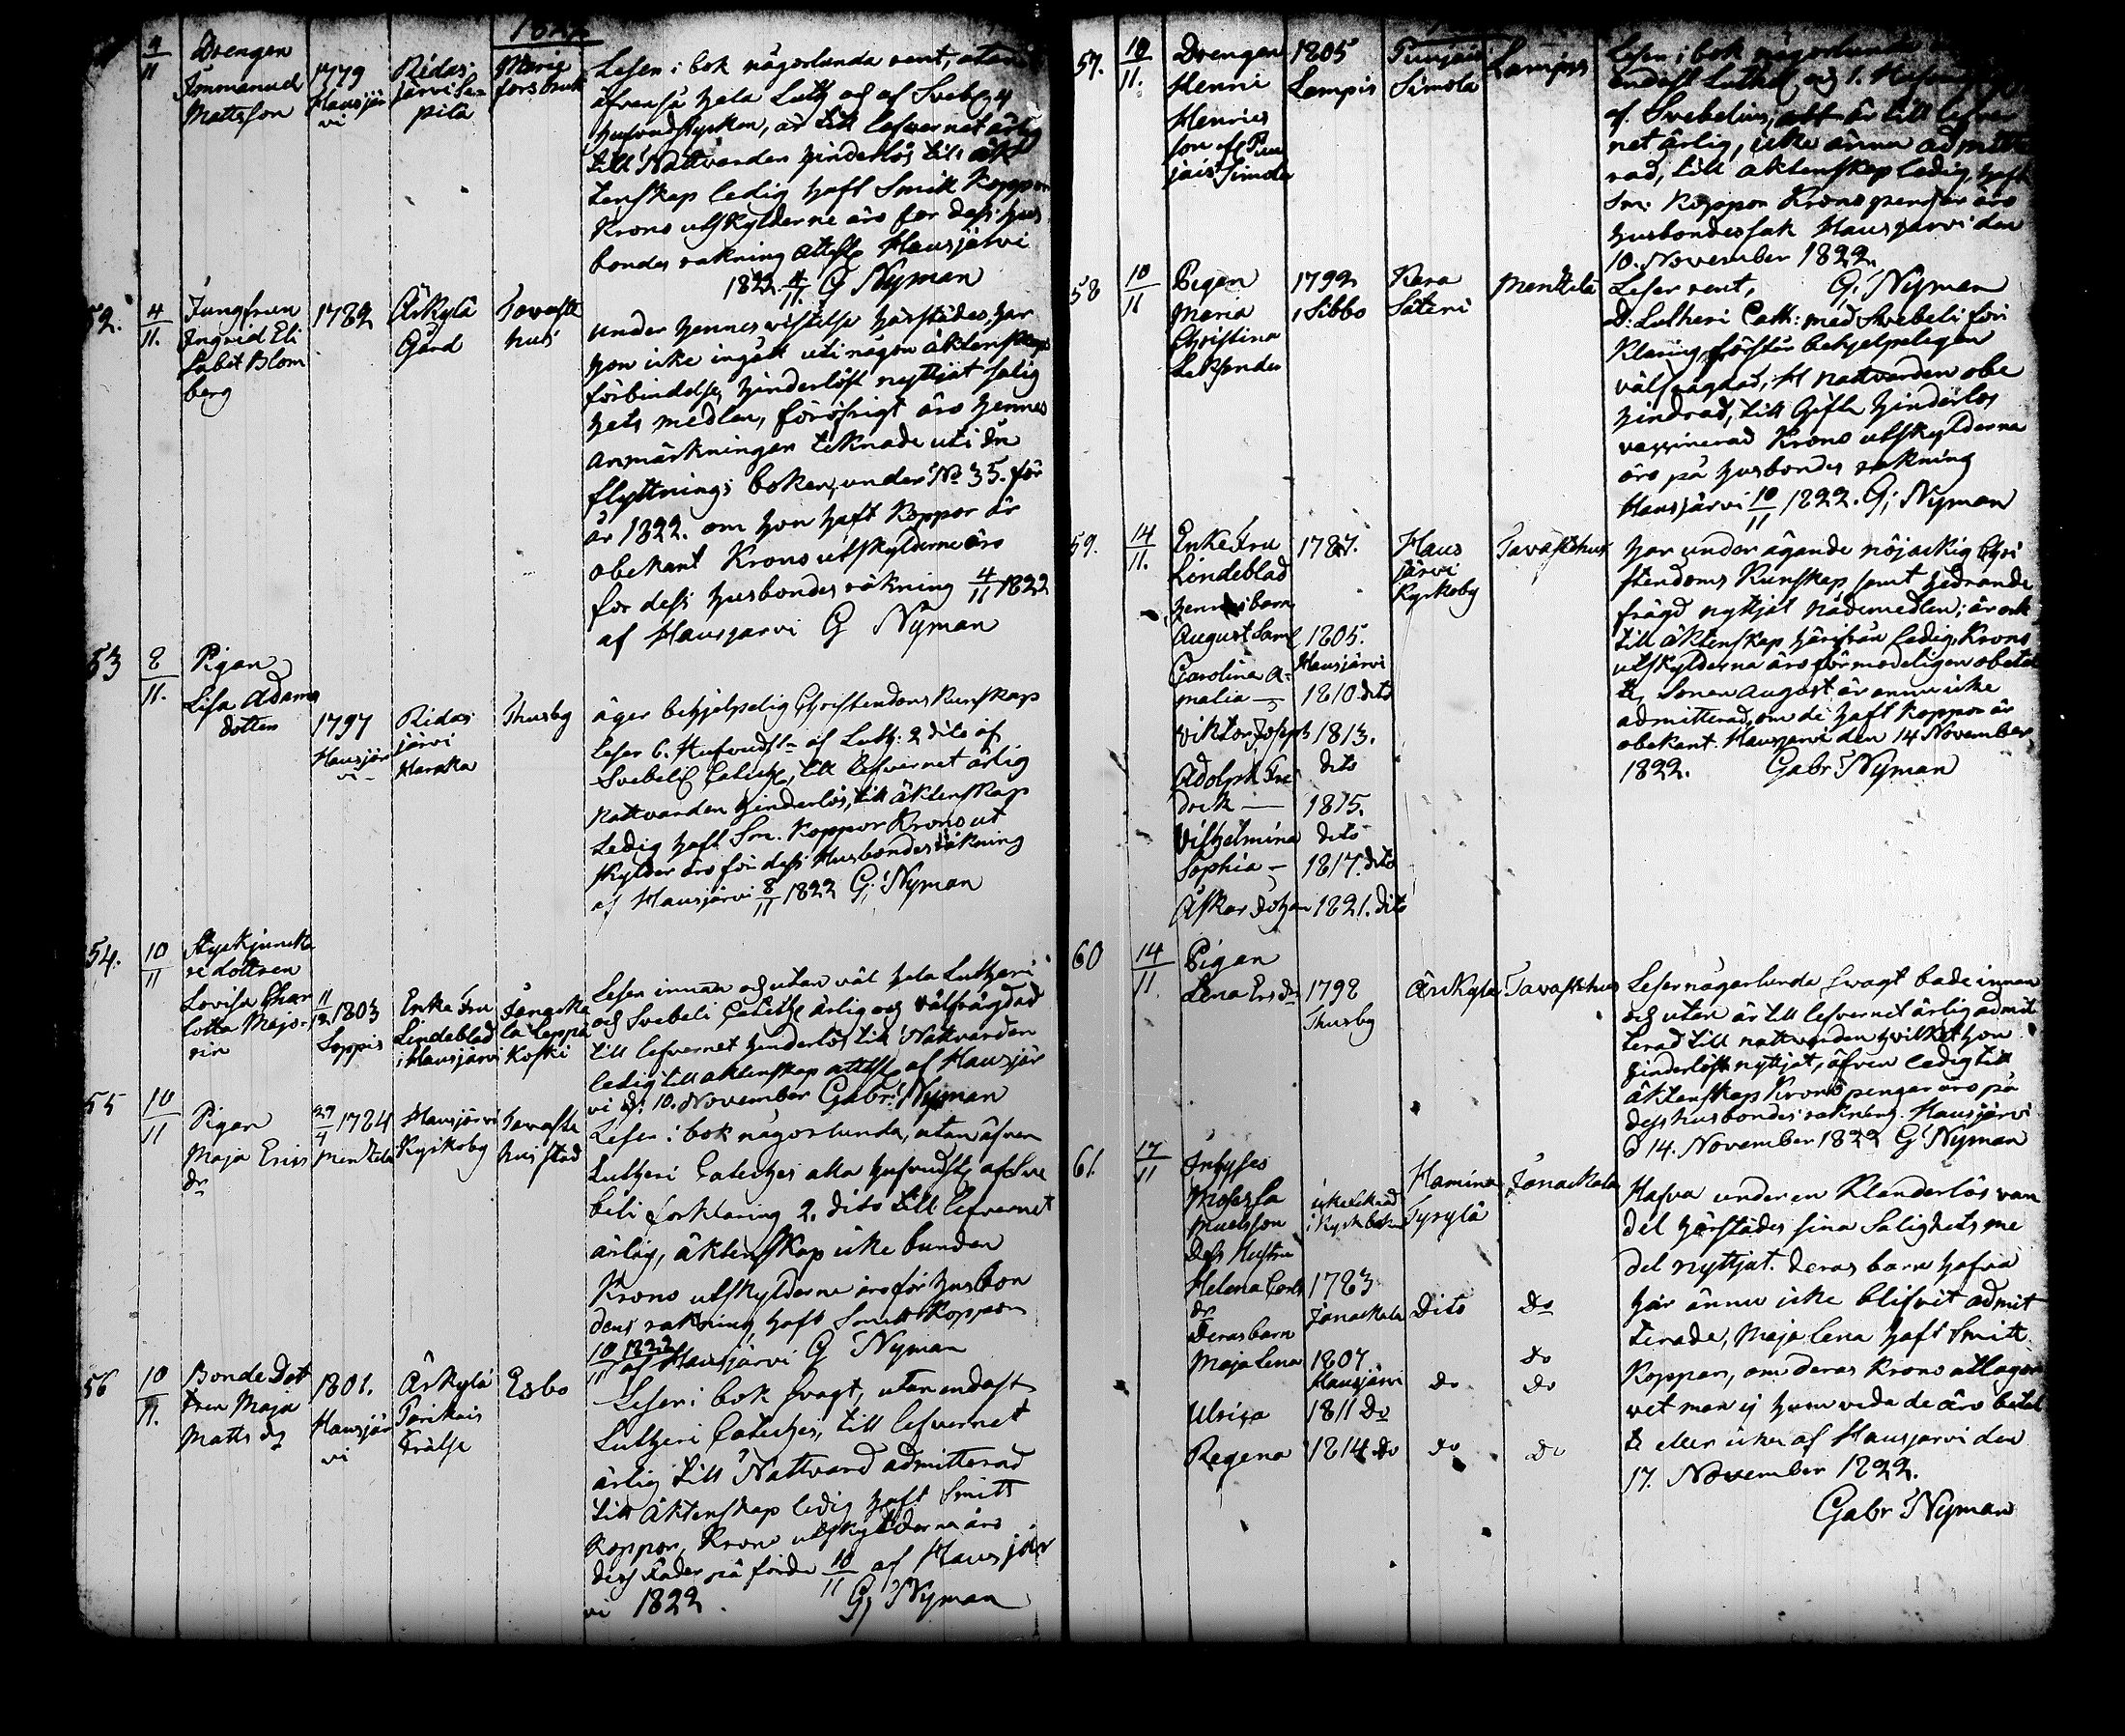 1822
4/11 Drengen
Immanuel
Mattsson
1779
Hausjär
vi
Ridas
järvi Se
pilä
Marie
fors bruk
Läser i bok någorlunda rent, utan
äfvenså hela Luth och af Sveb 4
hufvudstycken, är till lefvernet ärlig
till Nattvarden hinderlös till äk
tenskap ledig haft Smitt Koppor
Krono utskylderne äro for dess hus
bondes räkning attest Hausjärvi
1822 4/11 G Nyman
52. 4/11. Jungfrun
Ingrid Eli
sabet Blom
berg
1782
Äikylä
Gård
Tavaste
hus
under hennes vistelse härstädes, har
hon icke ingått uti någon äktenskaps
förbindelse, hinderlöst nyttjat salig
hets medlen, föröfrigt äro hennes
anmärkningar teknade uti In
flyttnings boken, under No 35. för
år 1822. om hon haft Koppor är
obekant Krono utskylderne äro
for dess husbondes räkning 4/11 1822
af Hausjärvi G Nyman
53 8/11. Pigan
Lisa Adams
dotter
1797
Hausjär
vi
Ridas
järvi
Haraka
Thusby
äger behjelpelig Christendoms kunskap
läser 6. Hufvudst af Luth: 2 dito af
Svebeli Catech, till lefvernet ärlig
Nattvarden hinderlös, till äktenskap
Ledig haft Sm. Koppor Krono ut
skylder äro för dess Husbondes räkning
af Hausjärvi 8/11 1822 G: Nyman
54. 10/11 Styckjunka
re dottren
Lovisa Char
lotta Majo-
rin
11/12 1803
Loppis
Enke Fru
Lindeblad
i Hausjärvi
Janacka
la Leppä
koski
Läser innan och utan väl hela Lutheri
och Svebeli Catech ärlig och välfrägdad
till lefvernet hinderlös till Nattvarden
ledig till äktenskap attest af Hausjär
vi d: 10. November Gabr: Nyman
55 10/11 Pigan
Maja Erics
dr
29/4 1784
Mentzelä
Hausjärvi
Kyrkoby
Tavaste
hus stad
Läser i bok någorlunda, utan äfven
Lutheri Cateches alla hufvudst af Sve
beli förklaring 2. dito till lefvernet
ärlig, äktenskap icke bunden
Krono utskylderne äro för husbon
dens räkning, haft Smitt Koppor
10/11 1822 af Hausjärvi G Nyman
56 10/11. Bonde Dot
tren Maja
Matts dr
1801.
Hausjär
vi
Äikylä
Parikais
Frälse
Esbo
Läser i bok svagt, utan endast
Lutheri Cateches, till lefvernet
ärlig till Nattvard admitterad
till äktenskap ledig haft Smitt
koppor, Krono utskylderna äro
dess faders på förde 10/11 af Hausjär
vi 1822 G; Nyman
57. 10/11. Drengen
Henric
Henrics
son af Pun
jais Simola
1805
Lampis
Punjais
Simola
Lampis
Läser i bok någorlunda
endast Luthd, och 1. Hufvud
af. Svebelius, är till lefver
net ärlig, icke ännu admitte
rad, till äktenskap ledig, haft
Sm: Koppor Kronopengar äro
husbondes sak Hausjärvi den
10. November 1822.
G; Nyman
58 10/11 Pigan
Maria
Christina
1792
Sibbo
Kera
Säteri
Mentzelä
Läser rent,
D. Lutheri Cath: med Svebeli för
klaring, förstår behjelpeligen
välfrägdad, H nattvarden obe
hindrad, till Gifte hinderlös
vaxsinerad Krono utskylderna
äro på husbondes räkning
Hausjärvi 10/11 1822. G; Nyman
59. 14/11. Enke Fru
Lindeblad
hennes barn
August Saml
Carolina A-
malia —
Viktor Joseph
Adolph Fre
drik —
Vilhelmina
Sophia —
Åskar Johan
1787.
1805.
Hausjärvi
1810 dito
1813.
dito
1815.
dito
1817. dito
1821. dito
Haus
järvi
Kyrkoby
Tavastehus
har under ägande nöjacktig Chri
stendoms Kunskap samt hedrande
frägd nyttjat nådemedlen; är ock
till äktenskap härifrån ledig, Krono
utskylderna äro förmodeligen obetal
te, Sonen August är ännu icke
admitterad, om de haft Koppor är
obekant. Hausjärvi den 14 November
1822. Gabr Nyman
60 14/11 Pigan
Lena Ers dr
1798
Thusby
Äickylä
Tavastehus
Läser någorlunda svagt både innan
och utan är till lefvernet ärlig admit
terad till nattvarden hvilket hon
hinderlöst nyttjat, äfven ledig till
äktenskap Kronopengar äro på
dess husbondes räkning. Hausjärvi
d 14. November 1822 G Nyman
61. 17/11 Inhyses
Moses Sa
muelsson
Dess Hustru
Helena Carls
dr
Deras barn
Maja Lena
Ulrica
Regena
icke teknad
i Kyrkboken
1783
Janackala
1807
Hausjärvi
1811 Do
1814 do
Hamina
Tyrylä
Dito
do
do
Janackala
do
do
do
do
Hafva under en Klanderlös van
del härstädes sina Salighets me
del nyttjat. deras barn hafva
här ännu icke blifvit admit
terade, Maja Lena haft Smitt
Koppor, om deras krono utlagor
vet man ej huruvida de äro betal
te eller icke af Hausjärvi den
17. November 1822.
Gabr Nyman